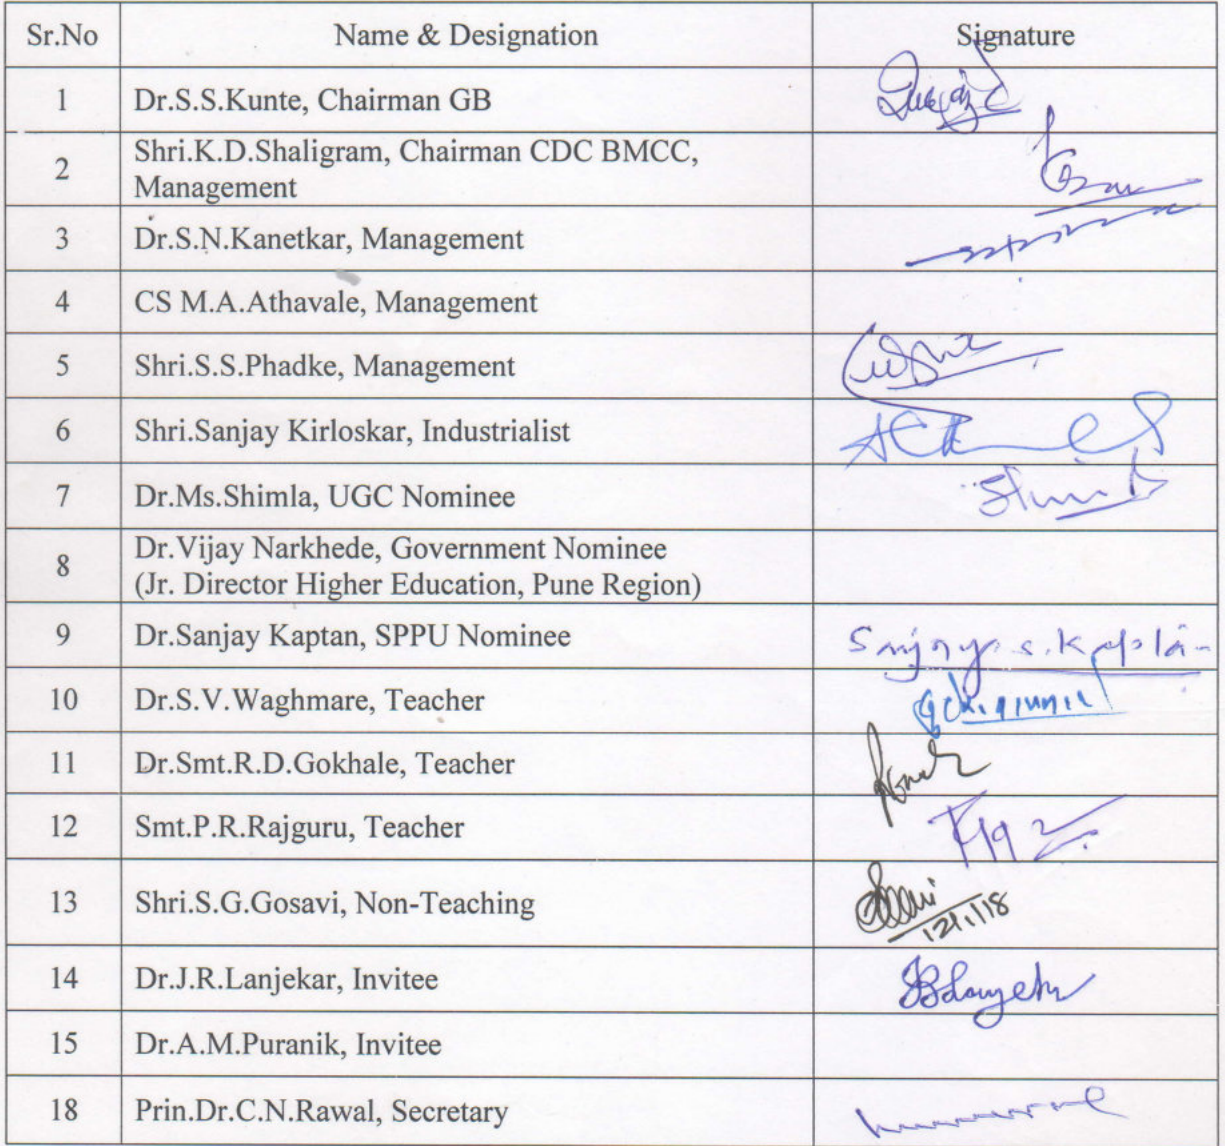 Sr.No Name & Designation Signature
1 Dr.S.S.Kunte, Chairman GB
2 Shri.K.D.Shaligram, Chairman CDC BMCC,
Management
3 Dr.S.N.Kanetkar, Management
4 CS M.A.Athavale, Management
5 Shri.S.S.Phadke, Management
6 Shri.Sanjay Kirloskar, Industrialist
7 Dr.Ms.Shimla, UGC Nominee
8 Dr.Vijay Narkhede, Government Nominee
(Jr. Director Higher Education, Pune Region)
9 Dr.Sanjay Kaptan, SPPU Nominee Sanjay s. Kaptan
10 Dr.S.V.Waghmare, Teacher
11 Dr.Smt.R.D.Gokhale, Teacher
12 Smt.P.R.Rajguru, Teacher
13 Shri.S.G.Gosavi, Non-Teaching
12/1/18
14 Dr.J.R.Lanjekar, Invitee
15 Dr.A.M.Puranik, Invitee
18 Prin.Dr.C.N.Rawal, Secretary